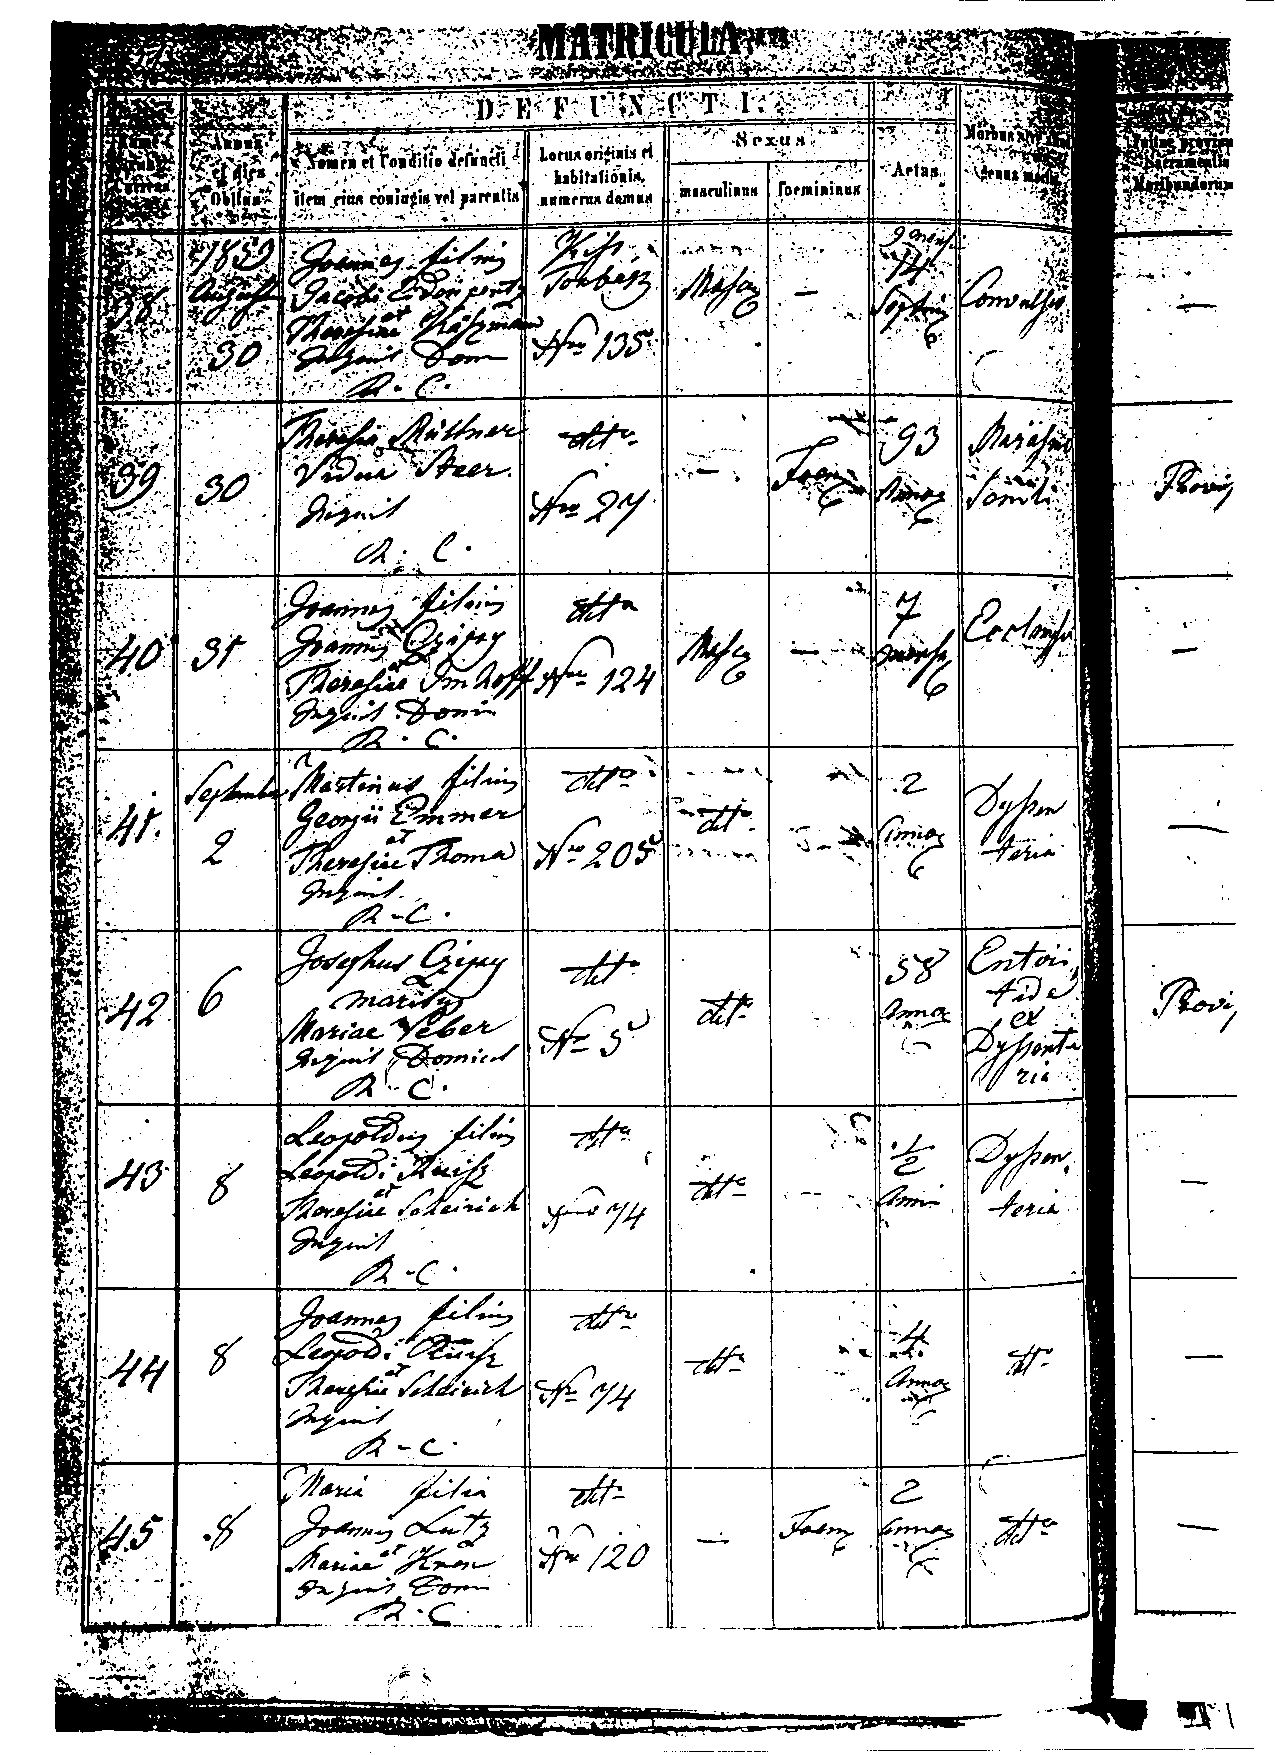 MATRICULA
DEFUNCTI.
Annus
et dies
Obitus
Nomen et Conditio defuncti
item eius coniugis vel parentis
Locus originis et
habitationis,
numerus domus
Sexus
masculinus
foemininus
Aetas
Morbus
genus mortis
Moribundorum
38
1859
August
30
Joannes filius
Jacobi
et
Theresiae
Inquil Dom
R. C.
Kiss
Torbasz
Nro 135
Mascu
—
9 mens
14
Convulsio
—
39
30
Theresia Müttner
Vidua Steer
Inquil
R. C.
detto
Nro 27
—
Foem
93
Annor
Marasm
Senili
Provis
40
31
Joannes filius
Joannis Czipry
et
Theresiae Imhoff
Inquil Domic
R. C.
detto
Nro 124
Mascu
—
7
mens
Eclamps
—
41.
September
2
Martinus filius
Georgii Emmer
et
Theresiae Thoma
Inquil.
R-C.
detto
Nro 205
detto
2
Annor
Dyssen
teria
—
42
6
Josephus Czipry
maritus
Mariae Veber
Inquil Domicil
R-C.
detto
Nro 5
detto
58
Annor
Enteri
tide
ex
Dyssente
ria
Provis
43
8
Leopoldus filius
Leopoldi
et
Theresiae Scheirich
Inquil
R-C.
detto
Nro 74
detto
1/2
Anni
Dyssen
teria
—
44
8
Joannes filius
Leopoldi
et
Theresiae Scheirich
Inquil
R-C.
detto
Nro 74
detto
4
Annor
detto
—
45
8
Maria filia
Joannis Lutz
et
Mariae
Inquil Dom
R. C.
detto
Nro 120
—
Foem
2
Annor
detto
—